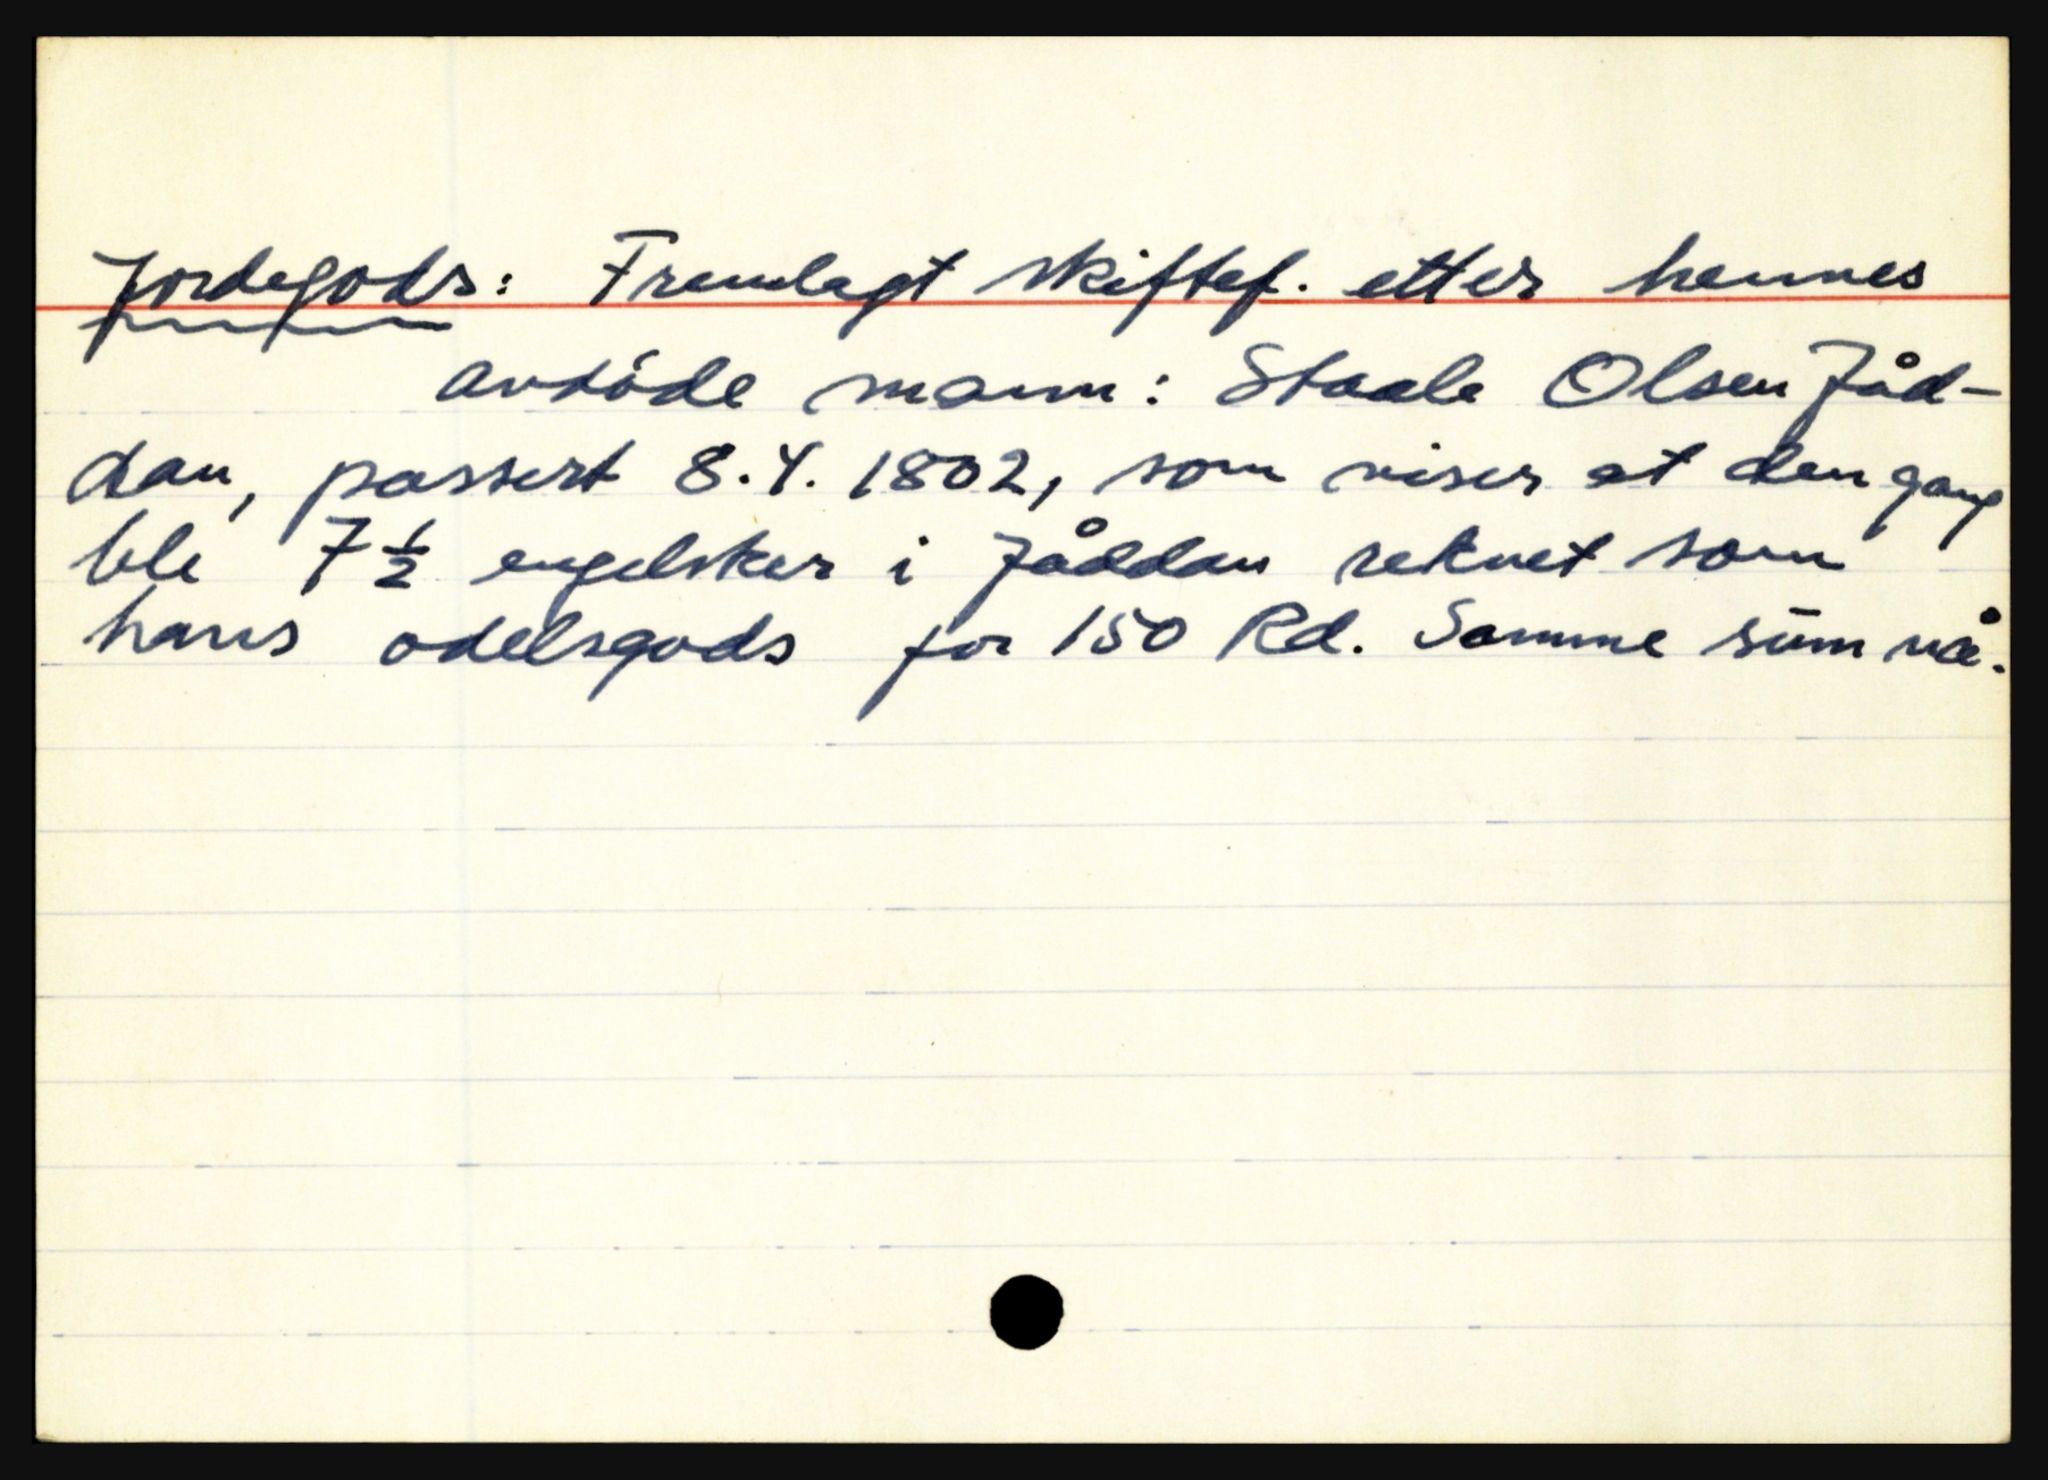 Jordegods: Fremlagt skiftef. etter hennes
avdöde mann: Staale Olsen Jåd-
dan, passert 8.4. 1802, som viser at den gang
ble 7 1/2 engelsker i Jåddan reknet som
hans odelsgods for 150 Rd. Samme sum nå.